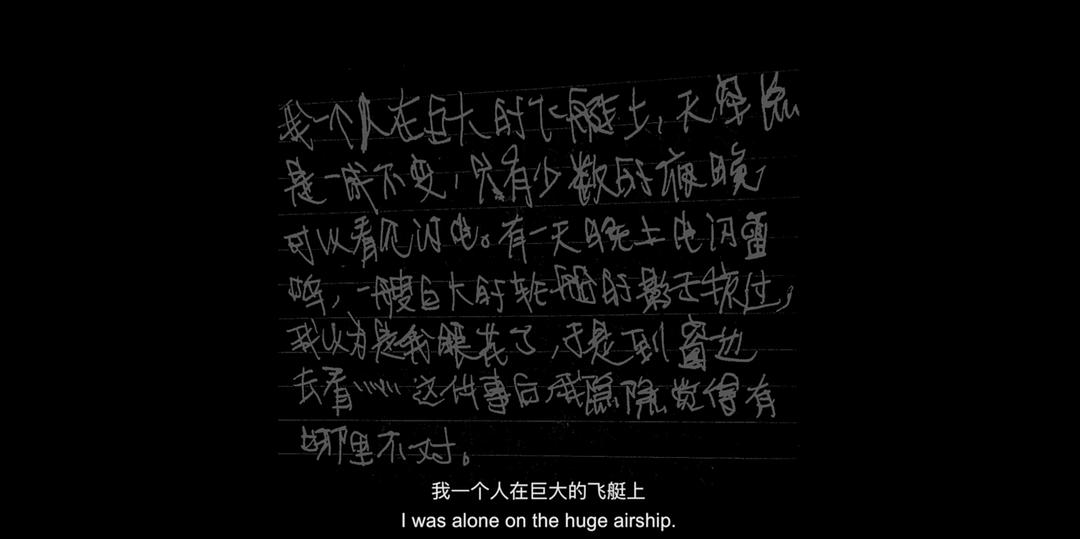 我一个人在巨大的飞艇上，天空总
是一成不变，只有少数的夜晚
可以看见闪电。有一天晚上电闪雷
鸣，一艘巨大的轮船的影子掠过，
我以为是我眼花了，于是到窗边
去看……这件事后，我隐隐觉得有
哪里不对。
我一个人在巨大的飞艇上
I was alone on the huge airship.